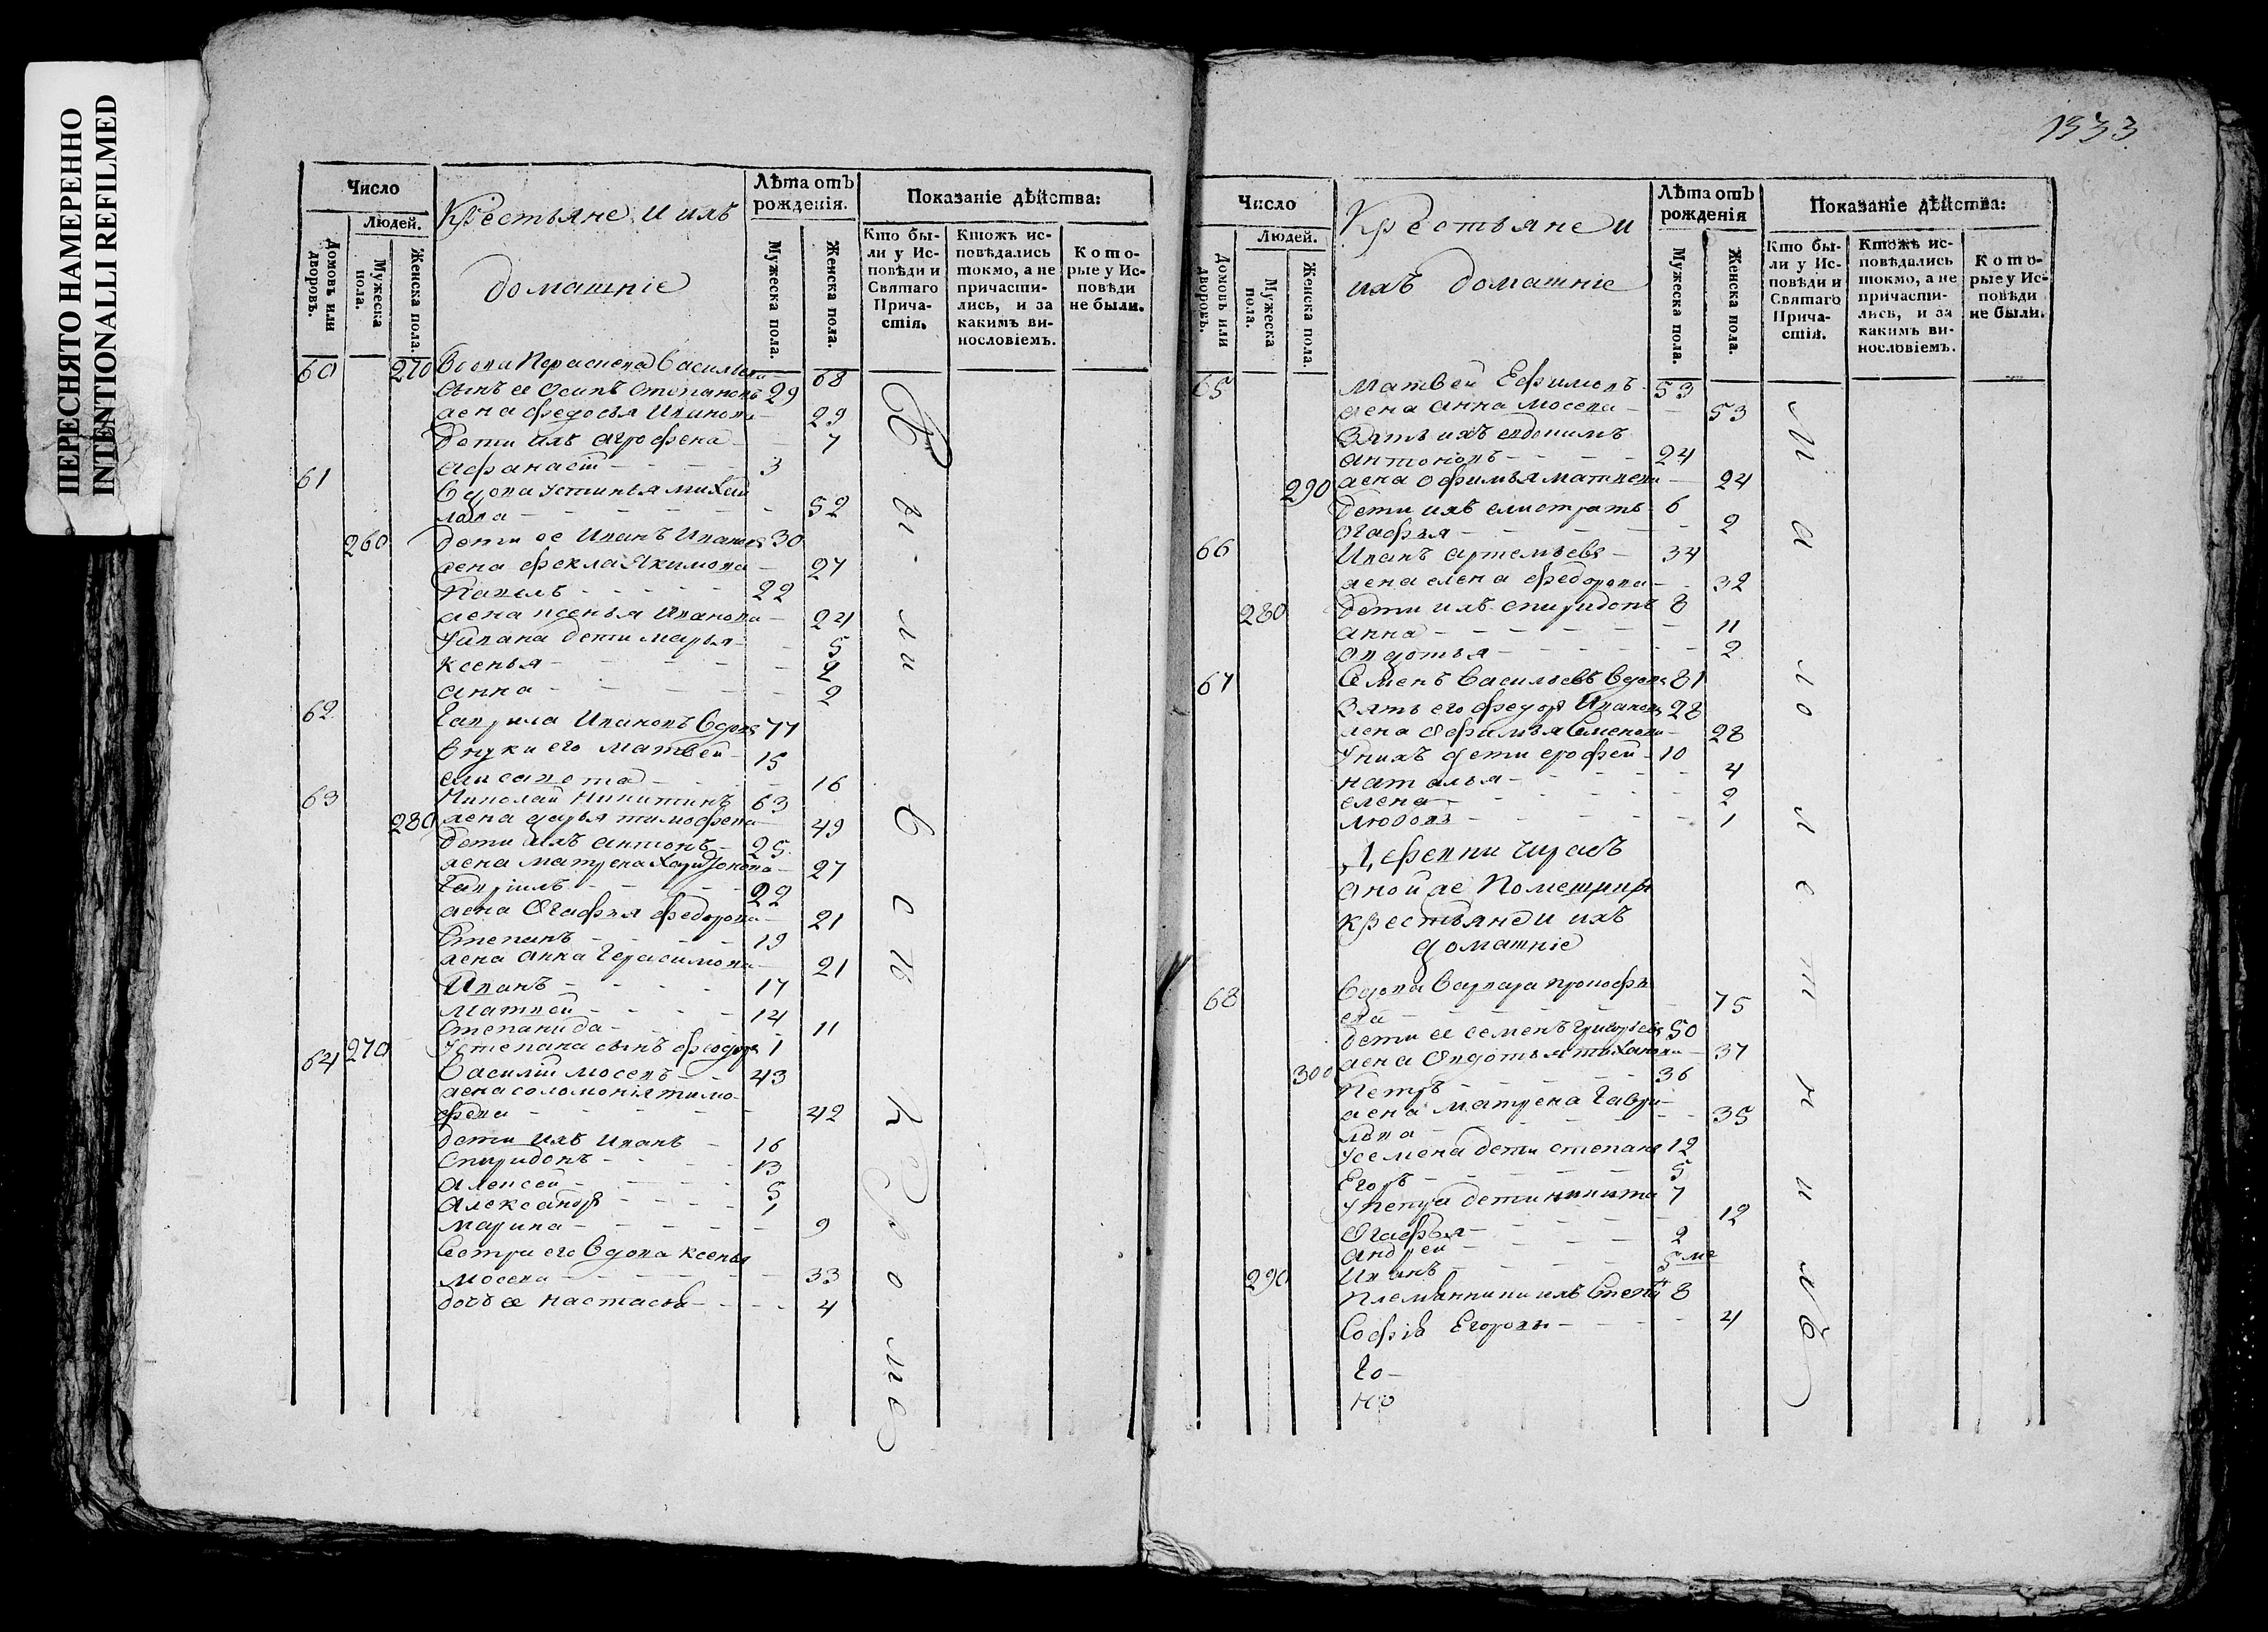 ПЕРЕСНЯТО НАМЕРЕННО
INTENTIONALLI REFILMED
Число
Людей.
Домовъ или дворовъ.
Мужеска пола.
Женска пола.
Крестьяне и ихъ
домашніе
Лѣта отъ рожденія.
Мужеска пола.
Женска пола.
Показаніе дѣйства:
Кто бы-
ли у Ис-
повѣди и
Святаго
Прича-
стія.
Ктожъ ис-
повѣдались
токмо, а не
причасти-
лись, и за
какимъ ви-
нословіемъ.
Кото-
рые у Ис-
повѣди
не были.
60 270 Параскева Василь 68
сынъ ее Осипъ Степановъ 29
жена Федосья Иванова 29
дети ихъ Агрофена 7
Афанасiй 3
61 Вдова Устинья Михай
лова 52
260 дети ее Иванъ Ивановъ 30
жена Фекла Якимова 27
22
жена Ксенья Иванова 24
У Ивана дети Марья 5
Ксенья 2
Анна 2
62 Гаврила Ивановъ вдовъ 77
внуки его Матвей 15
Елисавета 16
63 Николай Никитинъ 63
280 жена Дарья Тимофева 49
дети ихъ Антонъ 25
жена Матрена Харитонова 27
Гаврiилъ 22
жена Огафья Федорова 21
Степанъ 19
жена Анна Герасимова 21
Иванъ 17
Матвей 14
Степанида 11
270 У Степана сынъ Феодоръ 1
64 Василiй Мосевъ 43
жена Соломонiя Тимо-
фева 42
дети ихъ Иванъ 16
Спиридонъ 13
Алексей 5
Александръ 1
Марина 9
Сестра его вдова Ксенья
Мосева 33
дочь ее Настасья 4
1333
Число
Людей.
Домовъ или дворовъ.
Мужеска пола.
Женска пола.
Крестьяне и
ихъ домашніе
Лѣта отъ рожденія
Мужеска пола.
Женска пола.
Показаніе дѣйства:
Кто бы-
ли у Ис-
повѣди и
Святаго
Прича-
стія.
Ктожъ ис-
повѣдались
токмо, а не
причасти-
лись, и за
какимъ ви-
нословіемъ.
Кото-
рые у Ис-
повѣди
не были.
65 Матвей Ефимовъ 53
жена Анна Мосева 53
Зять ихъ Евдокимъ
Антоновъ 24
290 жена Офимья Матвева 24
дети ихъ Елистратъ 6
Огафья 2
66 Иванъ Артемьевъ 34
жена Елена Федорова 32
280 дети ихъ Спиридонъ 8
Анна 11
Овдотья 2
67 Семенъ Васильевъ вдовъ 81
Зять его Федоръ Ивановъ 28
жена Офимья Семенова 28
У нихъ дети Ерофей 10
Наталья 4
Елена 2
Любовь 1
Деревни
оной же Помещицы
крестьяне и ихъ
домашніе
68 Вдова Варвара Прокофь
ева 75
дети ее Семенъ Григорьевъ 50
жена Овдотья Тиханова 37
300 Петръ 36
жена Матрена Гаври-
лова 35
У Семена дети Степанъ 12
Егоръ 5
У Петра дети Никита 7
Огафья 12
Андрей 2
290 Иванъ 5 ме
Племянники ихъ 8
Софiя Егоровы 4